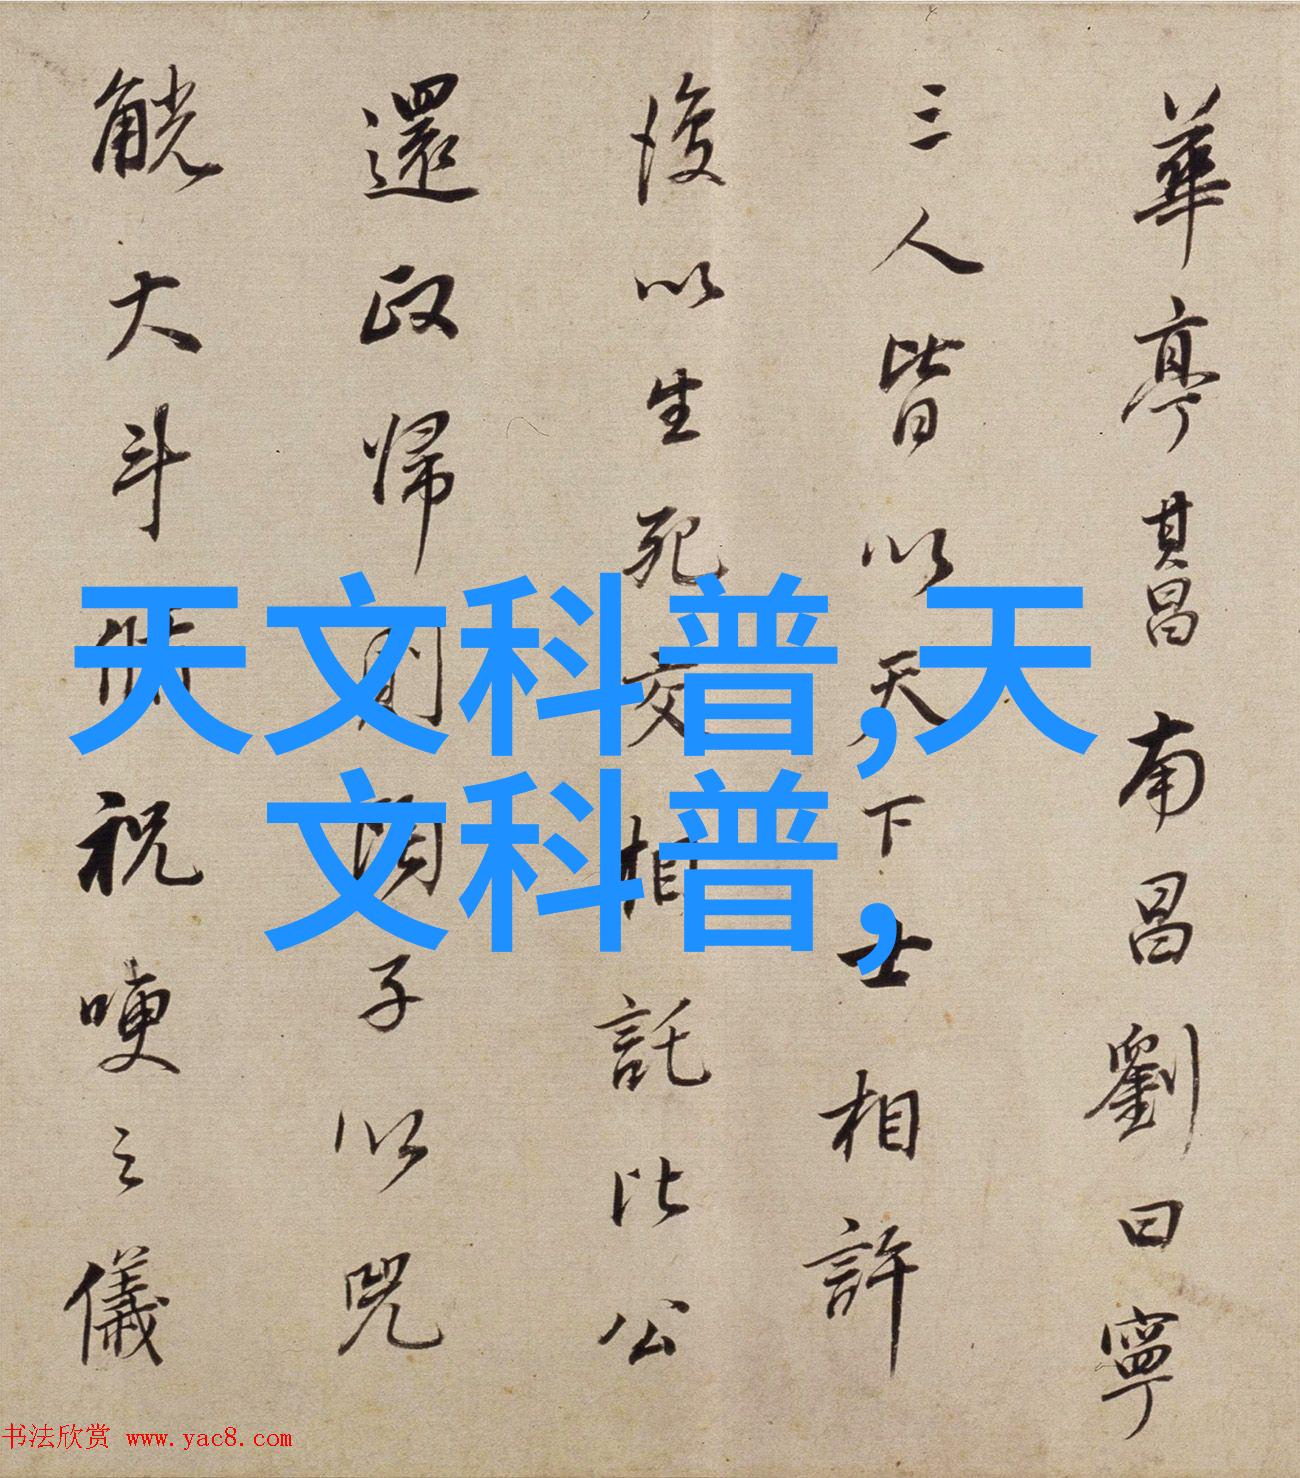 華亭其昌南昌劉曰寧
三人皆以天下士相許
後以生死交相託比公
還政歸則閒子以兕
觥大斗脩祝哽之儀
天文科普,天
文科普,
书法欣赏 www.yac8.com